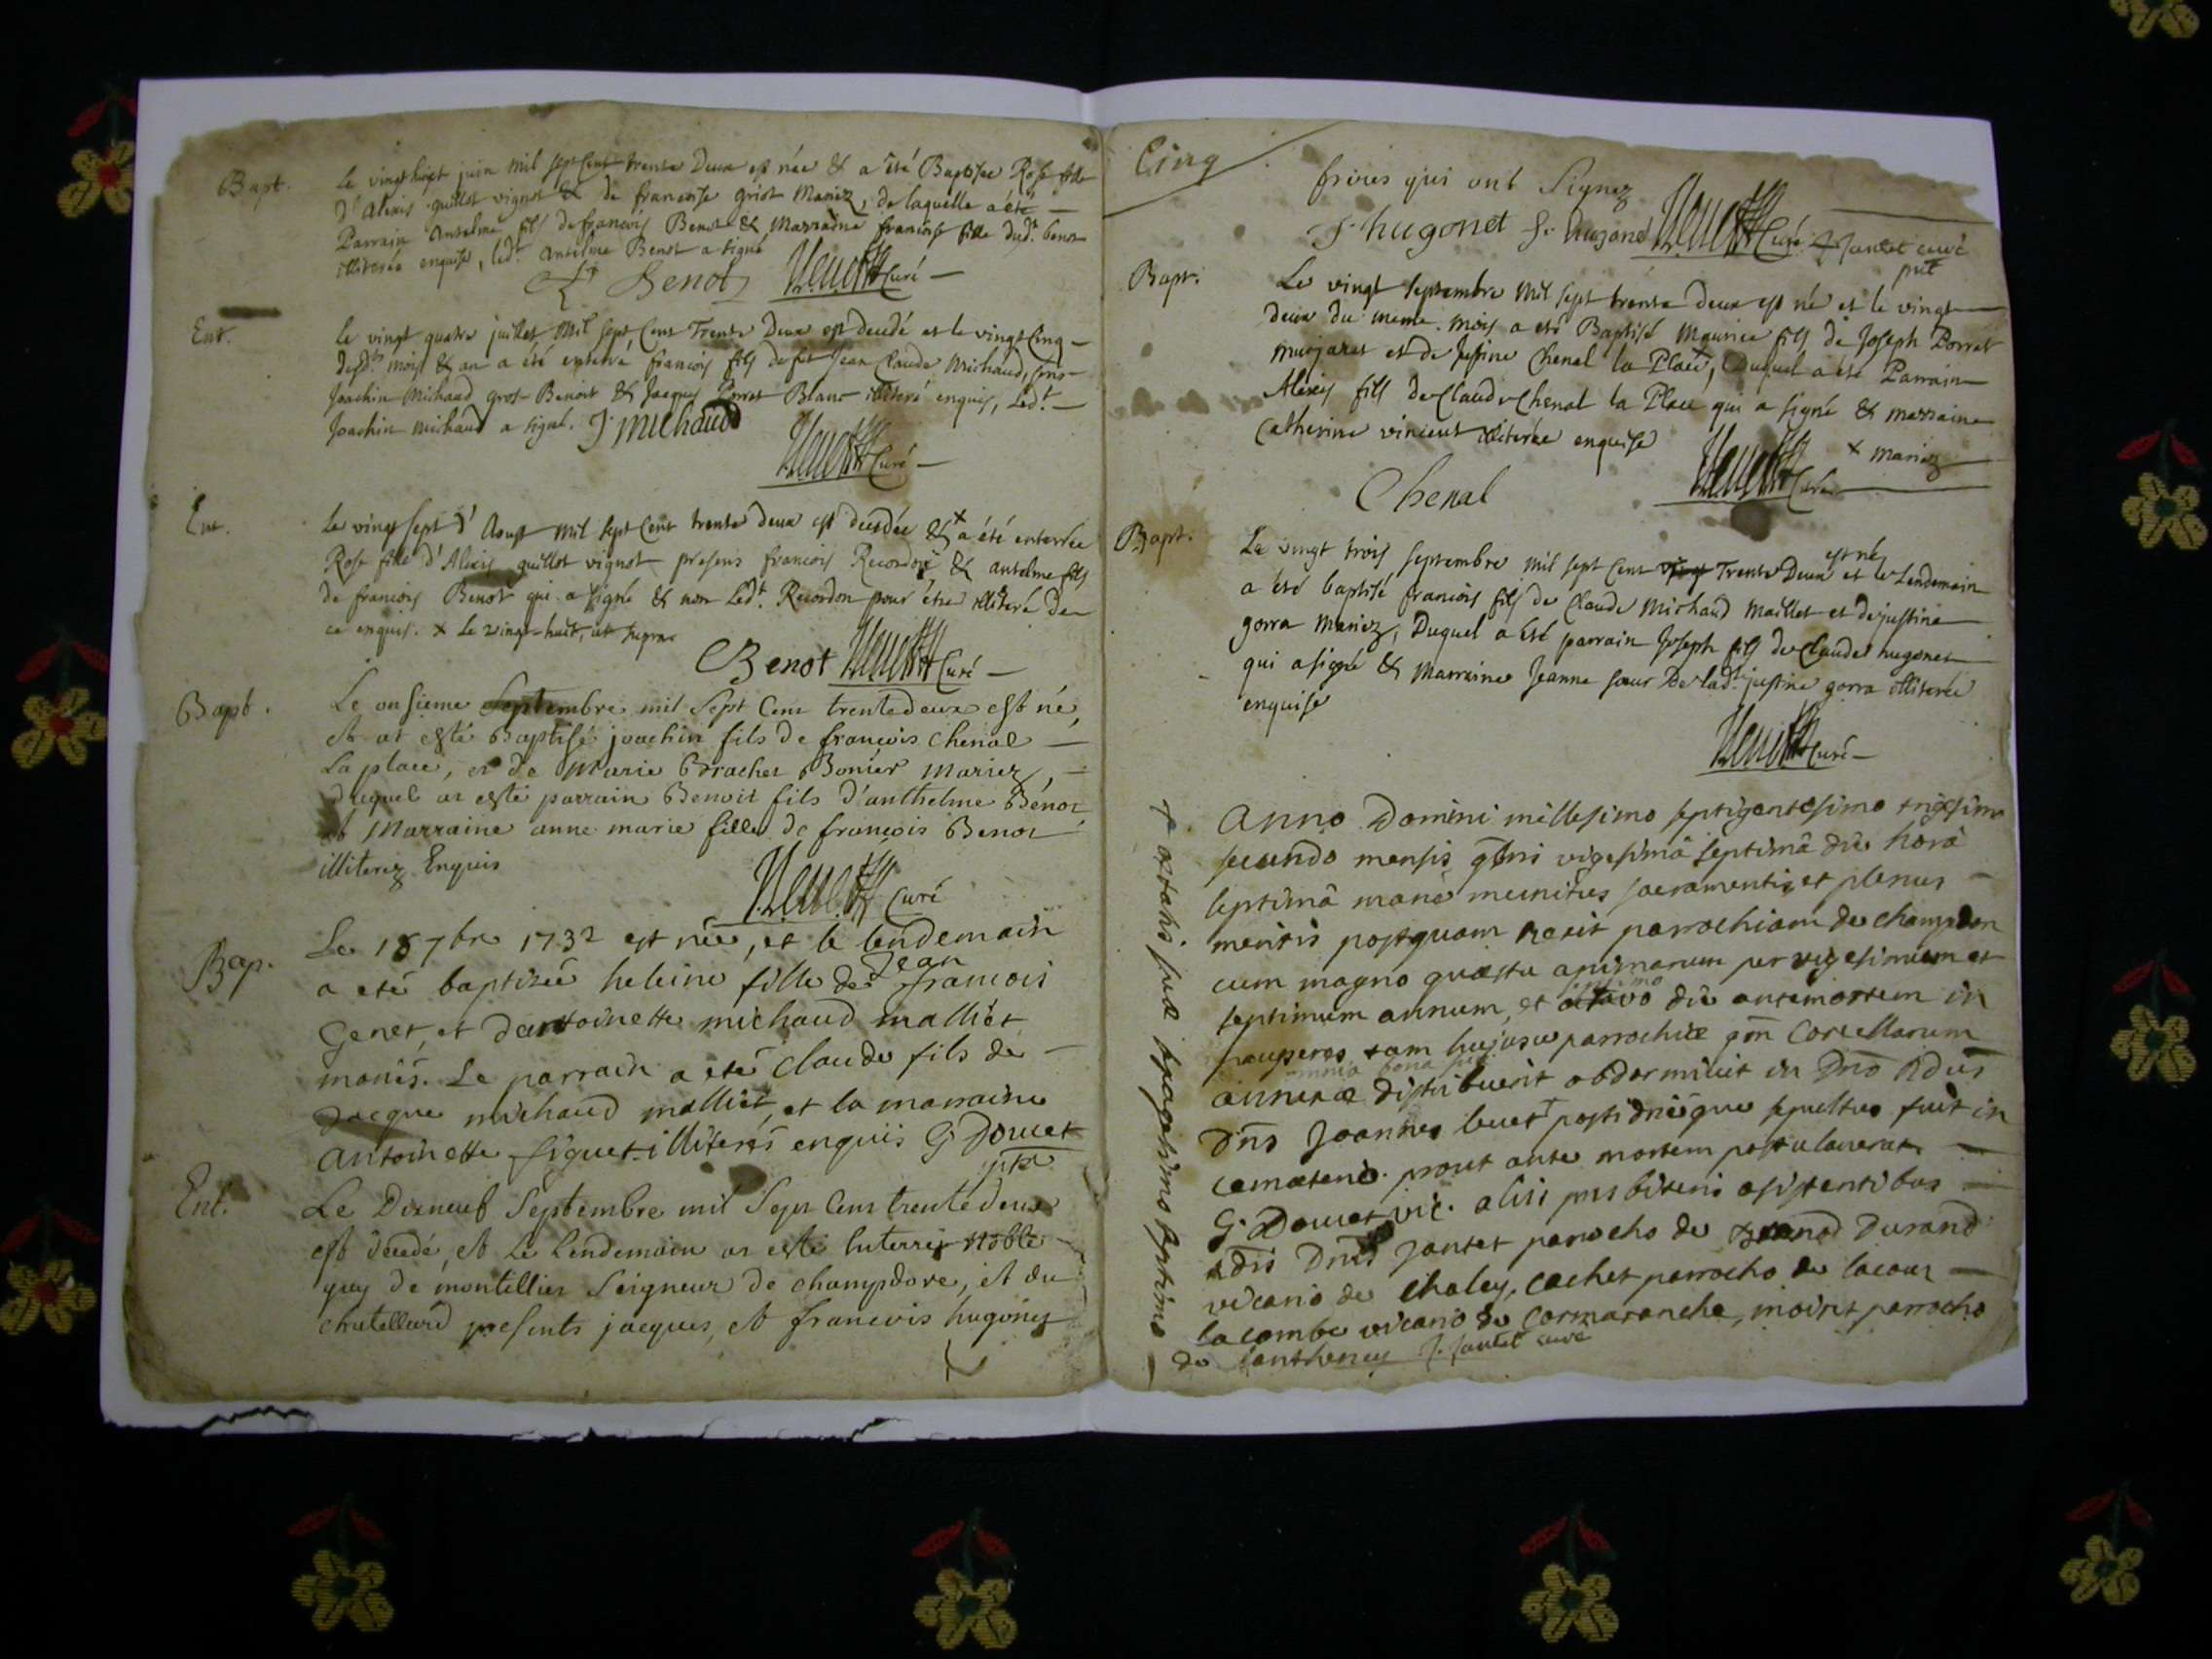 Bapt.
Le vingt huit juin mil sept Cent trente Deux est née & a été Baptisée Rose fille
d'Alexis guillot vignot & de francoise griot Mariez, de laquelle a été
Parrain Antelme fils de francois Benot & Marraine francoise fille dud.t benot
illiterée enquise, led.t Antelme Benot a signé
Benot Curé
Ent.
Le vingt quatre juillet Mil sept Cent Trente Deux est decedé et le vingt Cinq
desd.ts mois & an a été enterré francois fils de feu Jean Claude Michaud, pnts
Joachin Michaud gros Benoit & Jacques Porret Blanc illiteré enquis, Led.t
Joachin Michaud a signé. J michaud
Curé
Ent.
Le vingt sept d'Aoust mil sept Cent trente deux est decedée & x a été enterrée
Rose fille d'Alexis guillot vignot presens francois Recordon & antelme fils
de francois Benot qui a signé & non Led.t Recordon pour être illiteré de
ce enquis. x Le vingt-huit, ut supra
Benot Curé
Bapt.
Le onsieme Septembre mil Sept Cent trente deux est né,
et at esté Baptisé joachin fils de francois chenal
La place, et de Marie Brachet Bonier Mariez,
duquel at esté parrain Benoit fils d'anthelme Bénot
et Marraine anne marie fille de françois Benot
illiterez Enquis
Curé
Bap.
Le 18 7bre 1732 est née, et le lendemain
a eté baptizée heleine fille de Jean francois
Genet, et dantoinette michaud malliet
mariés. Le parrain a eté claude fils de
Jacque michaud malliet, et la marraine
antoinette figuet illiterés enquis G Doucet
ptre
Ent.
Le Dixneuf Septembre mil Sept Cent trente deux
est decedé, et le lendemain at esté Enterré noble
guy de montellier Seigneur de champdore, et du
chatellard presents jacques, et francois hugonet
Cinq
freres qui ont Signez
J. hugonet f. hugonet Curé J Jantet curé
pnt
Bapt.
Le vingt septembre Mil sept trente deux est né et le vingt
deux du meme mois a eté Baptisé Maurice fils de Joseph Porret
murjaret et de Justine Chenal la Place, x Duquel a été Parrain
Alexis fils de Claude Chenal la Place qui a signé & marraine
Catherine vincent illiterée enquise x mariez
Chenal Curé
Bapt.
Le vingt trois septembre mil sept Cent vingt Trente Deux est né et le Lendemain
a été baptisé francois fils de Claude Michaud Maillet et de justine
gorra Mariez, Duquel a été parrain Joseph fils de Claude hugonet
qui a signé & Marraine Jeanne soeur De lad.te justine gorra illiterée
enquise
Curé
anno Domini millesimo septigentesimo trigesimo
secundo mensis 9bris vigesimâ septimâ die horâ
septimâ mane munitus sacramentis et plenus
meritis postquam rexit parrochiam de champdor
cum magno quaestu animarum per vigesimum et
septimum annum, et octavo die ante mortem in
pauperes tam hujusce parrochiae qm Corcellarum
annexae omnia bona sua distribuerit obdormivit in Dno Rdus
Dns Joannes Cuet + postridieque sepultus fuit in
coemeterio prout ante mortem postulaverat
G. Doucet vic. aliis prisbiteris assistentibus
rdis Dnis Jantet parrocho de Durand
vicario de Chaley, cachet parrocho de lacoux
lacombe vicario de Cormaranche, moiret parrocho
de lanthenay J. Jantet curé
+ aetatis suae sexagesimo septimo